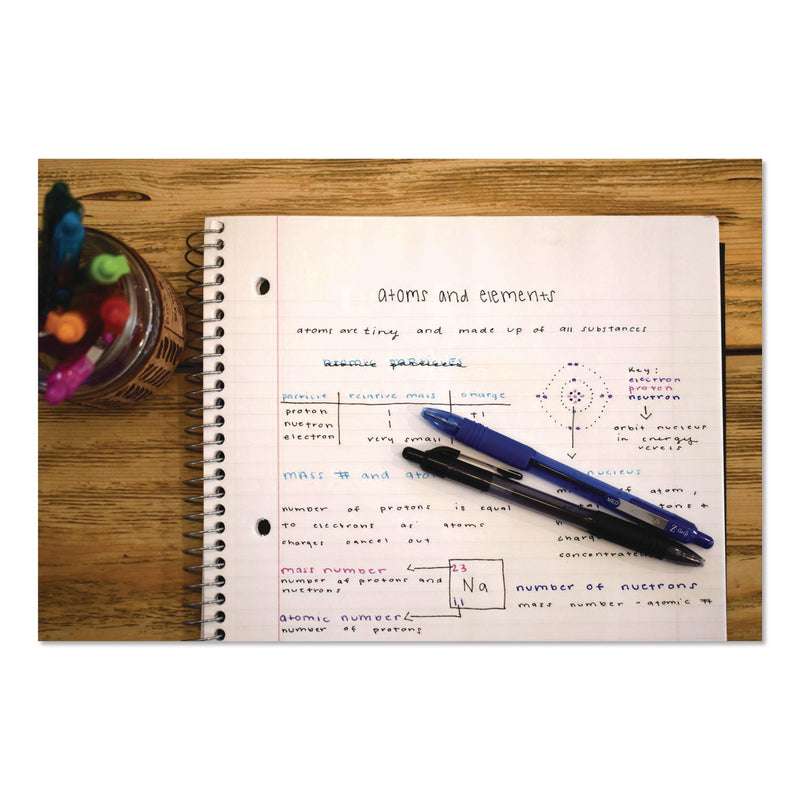 atoms and elements
atoms are tiny and made up of all substances
atomic particles
particle relative mass charge
proton 1 +1
nuetron 1
electron very small
Key:
electron
proton
neutron
orbit nucleus
in energy
levels
mass # and
nucleus
of atom,
number of protons is equal
to electrons as atoms
charges cancel out
mass number
number of protons and
nuetrons
23
Na
11
atomic number
number of protons
number of nuetrons
mass number - atomic #
MED
Z-Grip